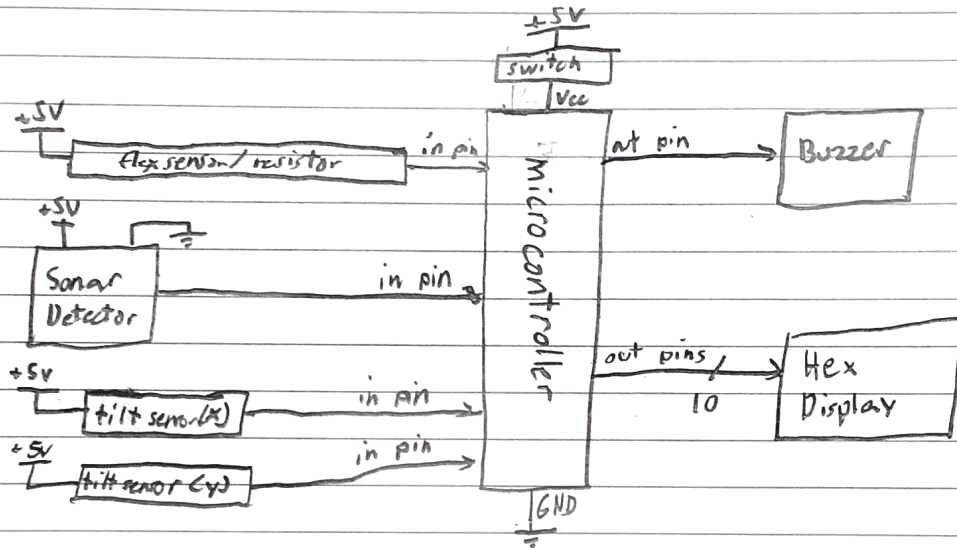 +5V
switch
Vcc
+5V
flex sensor/resistor
in pin
microcontroller
out pin
Buzzer
+5V
Sonar
Detector
in pin
out pins
10
Hex
Display
+5V
tilt senor(x)
in pin
+5V
tilt senor (y)
in pin
GND